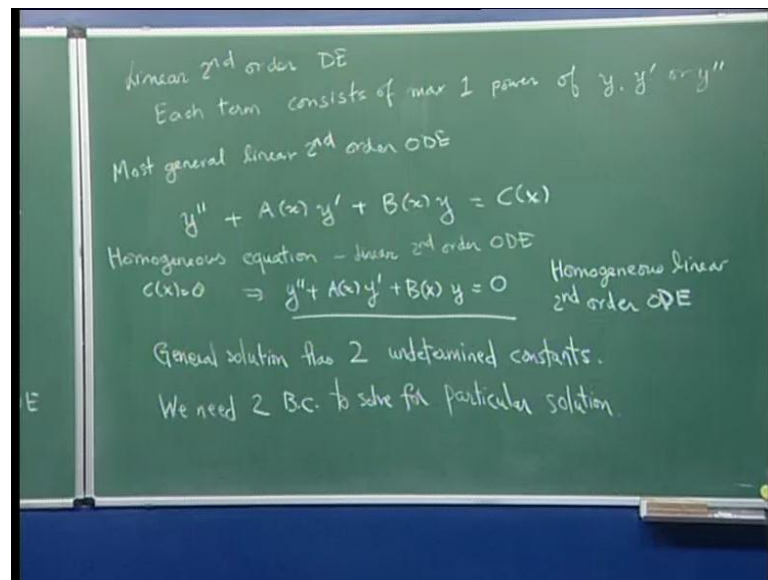 Linear 2nd order DE
Each term consists of max 1 power of y, y' or y"
Most general linear 2nd order ODE
y" + A(x) y' + B(x) y = C(x)
Homogeneous equation - linear 2nd order ODE
C(x)=0 ⇒ y"+ A(x) y' + B(x) y = 0 Homogeneous linear
2nd order ODE
General solution has 2 undetermined constants.
E We need 2 B.C. to solve for particular solution.